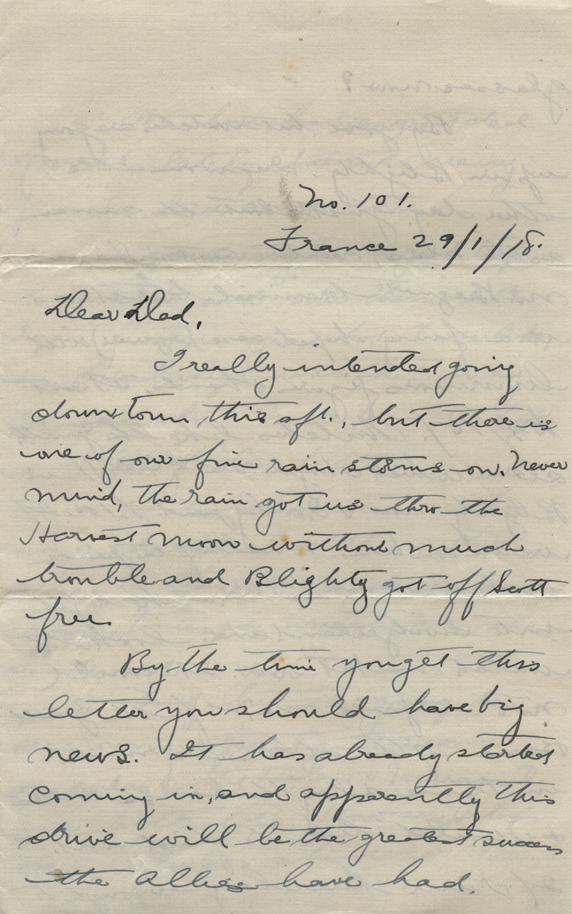 No. 101.
France 29/1/18.
Dear Dad,
I really intended going
down town this aft., but there is
one of our fine rain storms on. Never
mind, the rain got us thro the
Harvest Moon without much
trouble and Blighty got off Scott
free.
By the time you get this
letter you should have big
news. It has already started
coming in, and apparently this
drive will be the greatest success
the Allies have had.